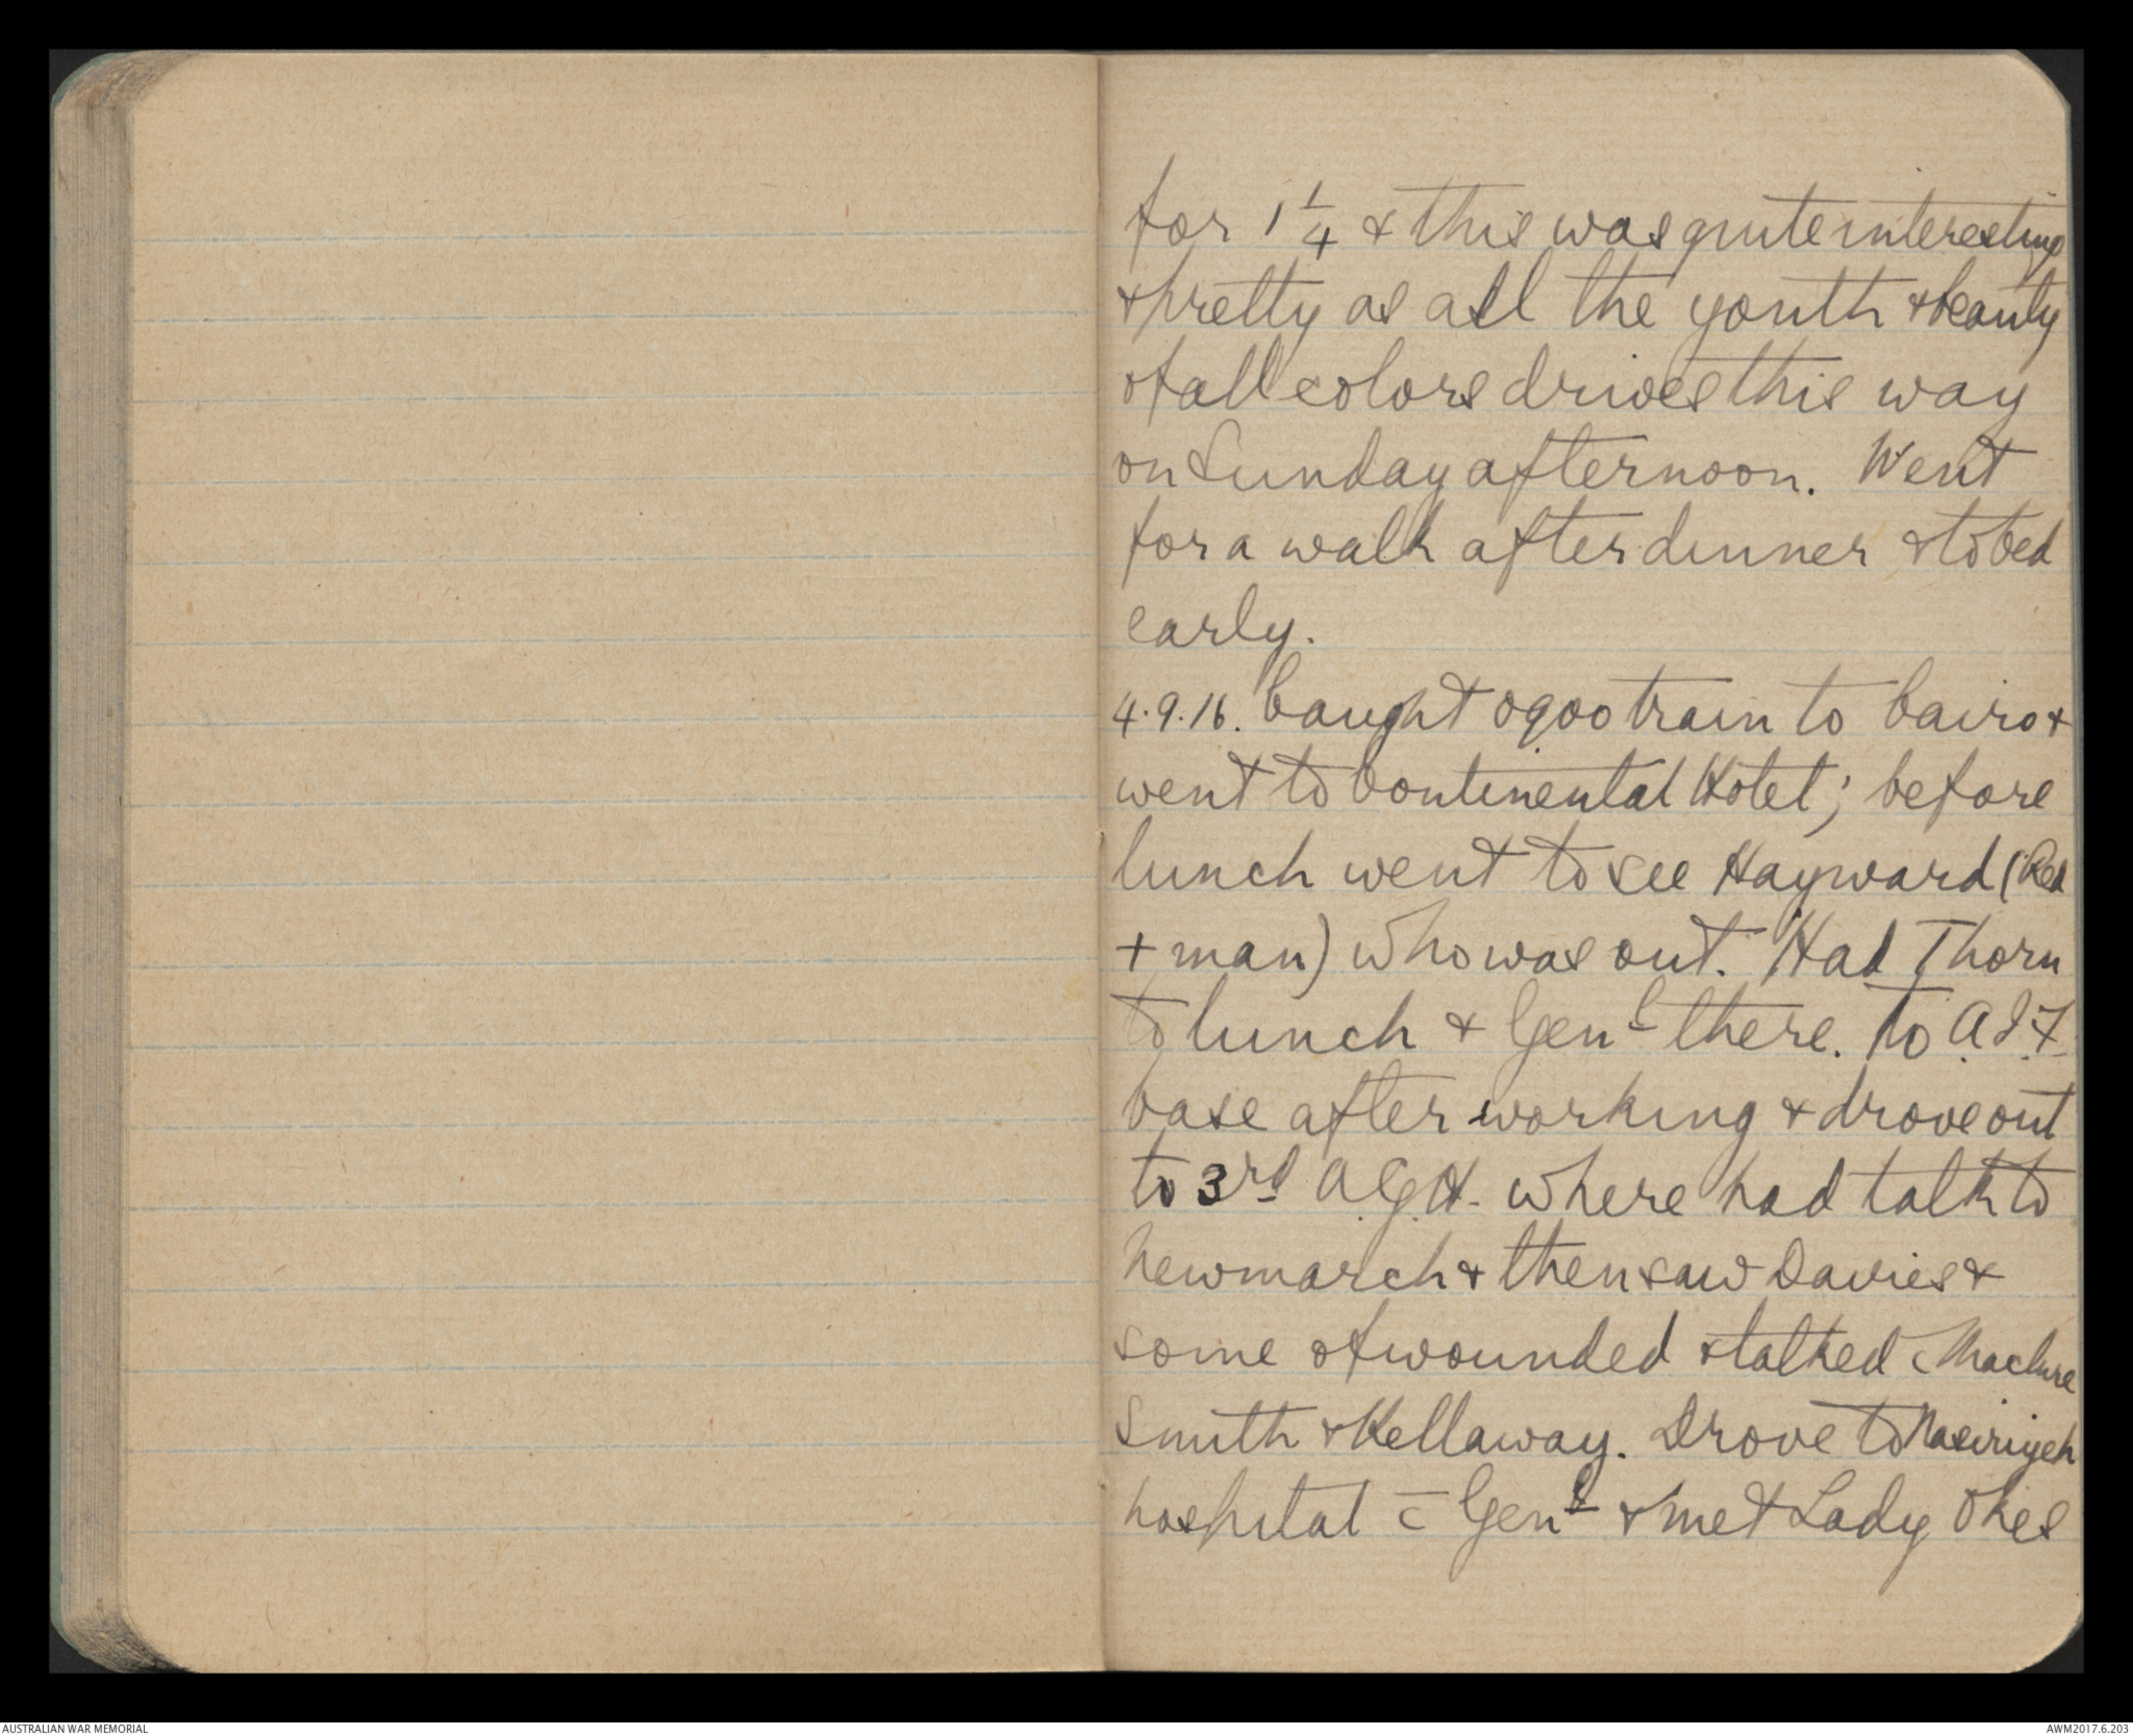 for 1 1/4 & this was quite interesting
& pretty as all the youth & beauty
of all colors drives this way
on Sunday afternoon. Went
for a walk after dinner & to bed
early.
4.9.16. Caught 0900 train to Cairo &
went to Continental Hotel; before
lunch went to see Hayward (Red
+ man) who was out. Had Thorn
to lunch & Genl there. To A.I.F.
base after working & drove out
to 3rd A.G.H. where had talk to
Newmarch & then saw Davies &
some of wounded & talked c̄ Maclure
Smith & Kellaway. Drove to Nasiriyeh
hospital c̄ Genl & met Lady Okes
AUSTRALIAN WAR MEMORIAL
AWM2017.6.203